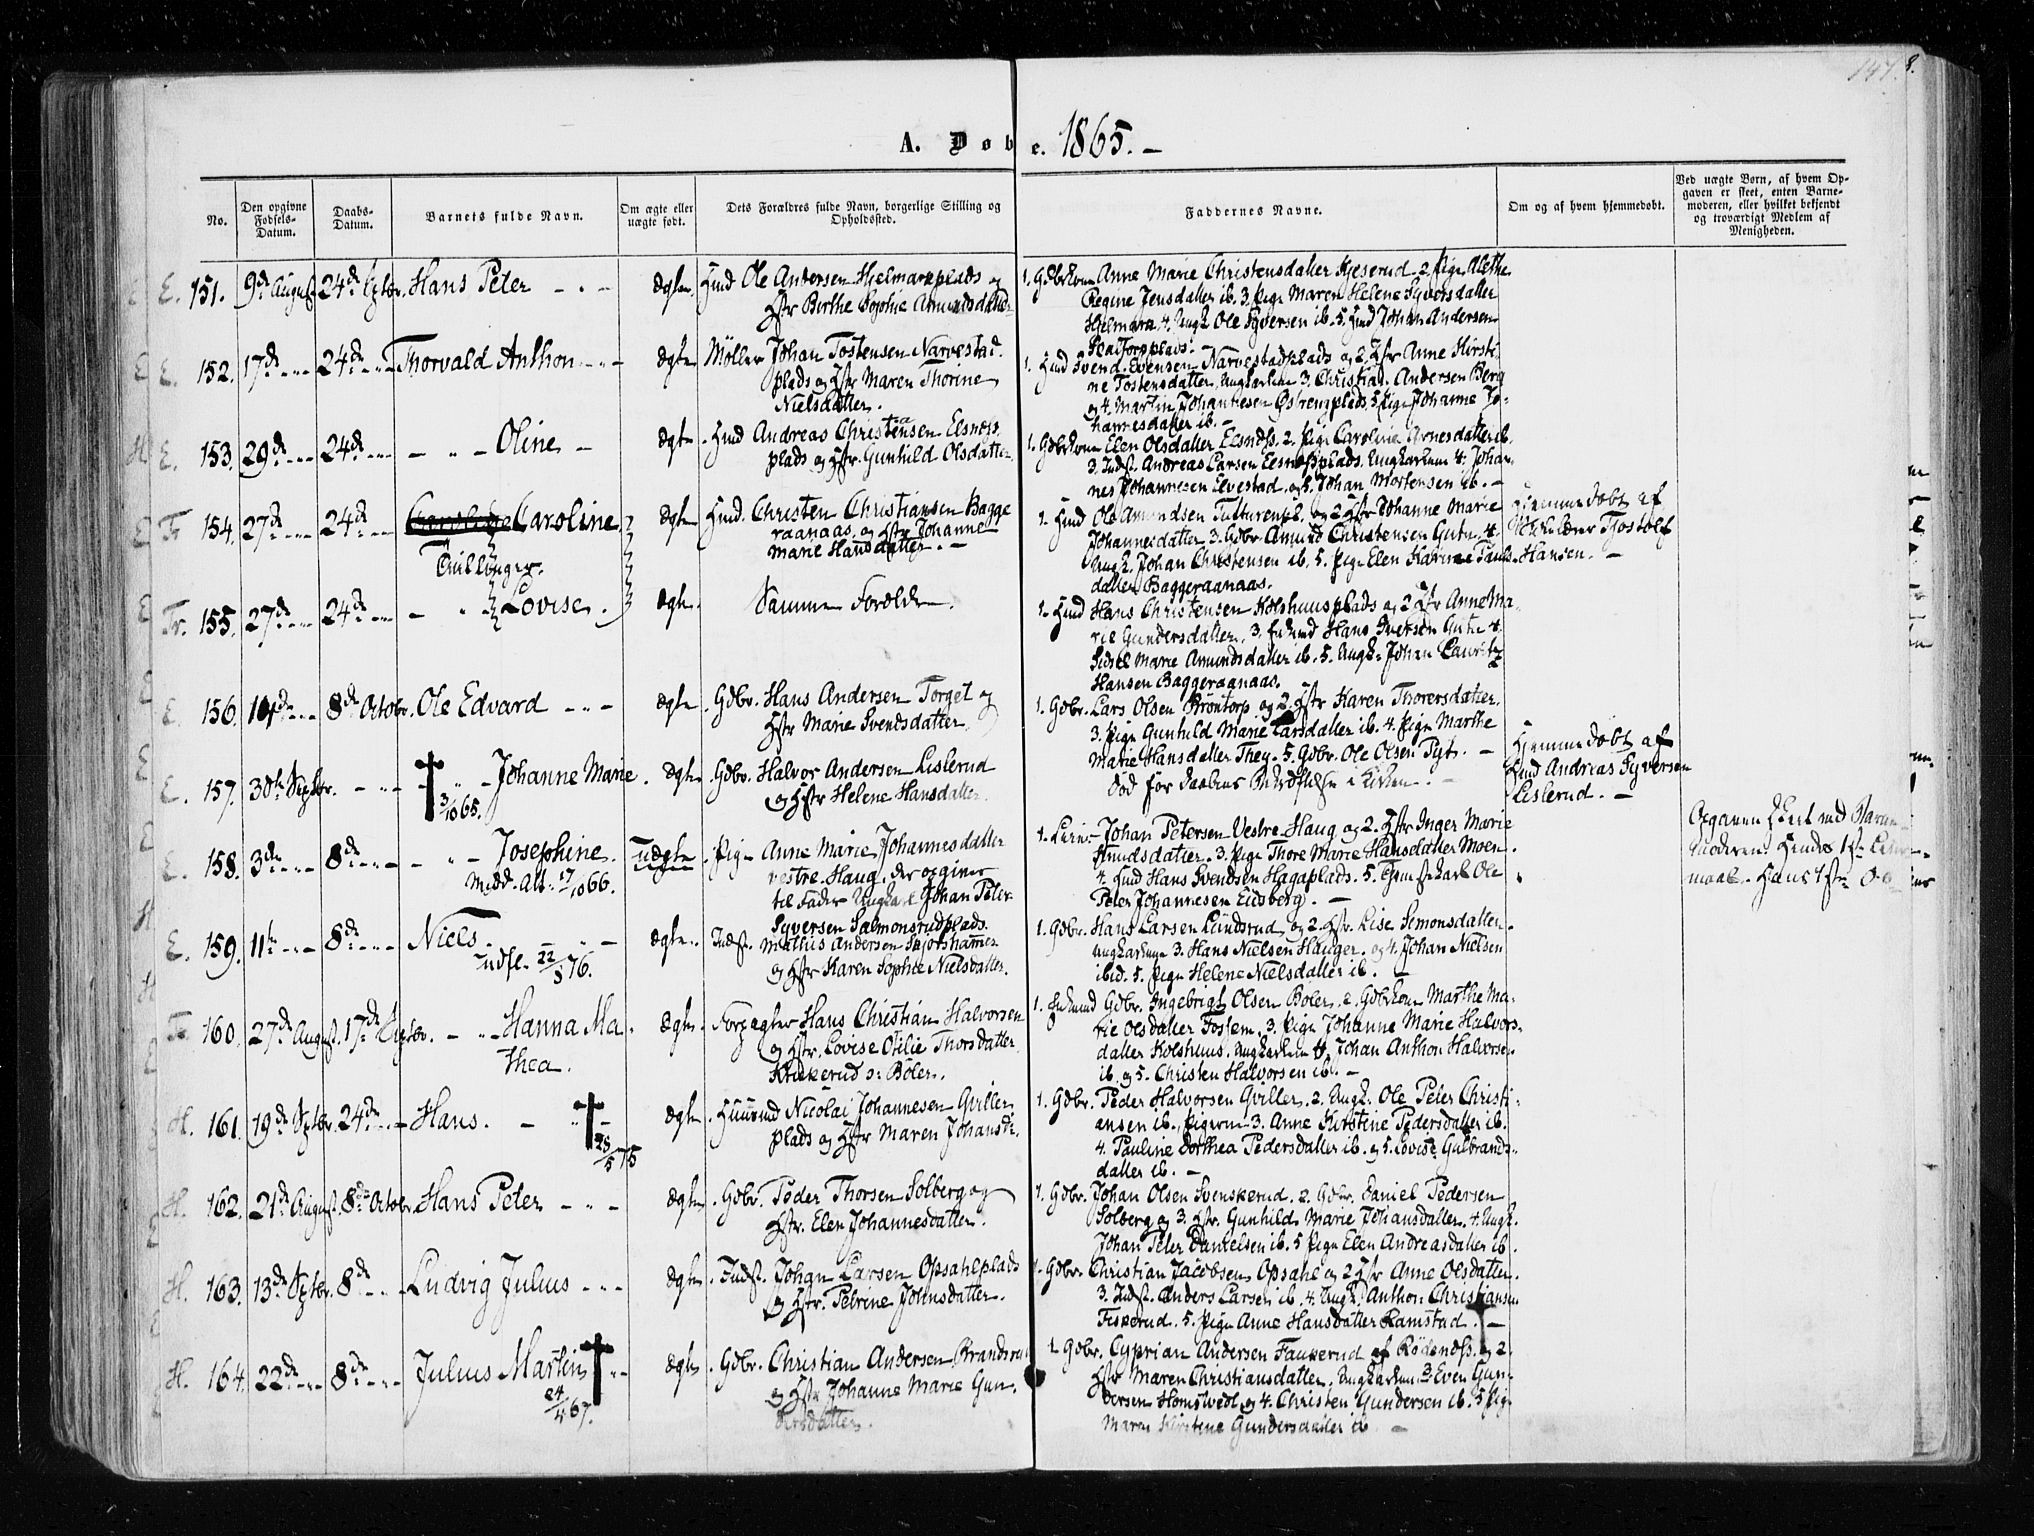 147. 8.
A. Døbe. 1865. –
No.
Den opgivne Fødsels-Datum.
Daabs-Datum.
Barnets fulde Navn.
Om ægte eller uægte født.
Dets Forældres fulde Navn, borgerlige Stilling og Opholdssted.
Faddernes Navne.
Om og af hvem hjemmedøbt.
Ved uægte Børn, af hvem Opgaven er skeet, enten Barnemoderen, eller hvilket bekjendt og troværdigt Medlem af Menigheden.
E. 151. 9de August 24de Sptbr. Hans Peter – . – ægte. Hmd Ole Andersen Hjelmarkplads og
Hstr Birthe Sophie Amundsdatter
1. Gdbrkone Anne Marie Christensdatter Kjeserud. 2. Pige Alethe
Regine Jensdatter ib. 3. Pige Maren Helene Syversdatter
Hjelmark 4. Ungk. Ole Syversen ib. 5. Hmd Johan Andersen
E. 152. 17de 24de Thorvald Anthon ægte Møller Johan Tostensen Narvestad
plads og Hstr Maren Thorine
Nielsdatter.
1. Hmd Svend Evensen Narvestadplads og 2. Hstr Anne Kirsti
ne Tostensdatter, Ungkarlene 3. Christian Andersen Berg
og 4. Martin Johannesen Østrengplads. 5. Pige Johanne Jo-
hannesdatter ib. –
E. 153. 29de 24de – " – Oline – ægte . Hmd Andreas Christensen Elsness
plads og Hstr. Gunhild Olsdatter.
1. Gdbrkone Elen Olsdatter Elsness. 2. Pige Caroline Arnesdatter ib.
3. Indst. Andreas Larsen Elsnessplads. Ungkarlene 4. Johan-
nes Johannesen Elvestad og 5. Johan Mortensen ib. –
Fr 154. 27de 24de Caroline ægte . Hmd. Christen Christiansen Bagge
raanaas, og Hstr Johanne
Marie Hansdatter. –
Tvillinger.
1. Hmd Ole Amundsen Tutturenpl. og 2. Hstr Johanne Marie
Johannesdatter 3. Gdbr. Amund Christensen Gutu. 4.
Ungk. Johan Christensen ib. 5. Pige Elen Karine Pauls-
datter Baggeraanaas.
Hjemmedøbt af
Tjostolf
Hansen. –
Fr. 155. 27de 24de – " Lovise. ægte. Samme Forældre.
1. Hmd Hans Christensen Kolshuusplads og 2. Hstr Anne Ma-
rie Gundersdatter. 3. Hans Iversen Gutu 4.
Sidsel Marie Amundsdatter ib. 5. Ungk. Johan Lauritz
Hansen Baggeraanaas.
E. 156. 14de 8de Octobr. Ole Edvard – " – ægte . Gdbr. Hans Andersen Torget og
Hstr Marie Svendsdatter
1. Gdbr. Lars Olsen Brøntorp og 2. Hstr Karen Thorersdatter.
3. Pige Gunhild Marie Larsdatter ib. 4. Pige Marthe
Marie Hansdatter They. 5. Gdbr. Ole Olsen Pyt. –
E. 157. 30te Septbr. – " – † " – Johanne Marie . ægte . Gdbr. Halvor Andersen Lislerud
3/10 65.
og Hstr Helene Hansdatter.
Død før Daabens Bekræftelse i Kirken. –
Hjemmedøbt af
Hmd Andreas Syversen
Lislerud. –
E. 158. 3de 8de – " – Josephine. Uægte . Pige Anne Marie Johannesdatter
Medd. Att. 17/10 66.
vestre Haug, der opgiver
til Fader Ungkarl Johan Peter
Syversen Salmonsrudplads.
1. Johan Petersen Vestre Haug og 2. Hstr Inger Marie
Knudsdatter. 3. Pige Thore Marie Hansdatter Moen.
4. Hmd Hans Svendsen Hagaplads. 5. Tjenestekarl Ole
Peter Johannesen Eidsberg. –
Opgaven skeet ved Barne-
moderen. Hendes 1ste Leier-
maal. Hans 1ste Do
E. 159. 11te 8de Niels. ægte. Indst. Mathis Andersen Skjørshammer
Udfl. 22/3 76.
og Hstr Karen Sophie Nielsdatter.
1. Gdbr. Hans Larsen Lundsrud og 2. Hstr. Lise Simonsdatter.
Ungkarlene 3. Hans Nielsen Hauger. og 4. Johan Nielsen
ibid. 5. Pige Helene Nielsdatter ib. –
Fr 160. 27de August. 17de Sptbr. – " Hanna Ma-
thea.
ægte. Forpagter Hans Christian Halvorsen
og Hstr. Lovise Otilie Thorsdatter
Krukerud o: Bøler.
1. Gdbr. Ingebrigt Olsen Bøler. 2. Gdbrkone Marthe Ma-
rie Olsdatter Fossem. 3. Pige Johanne Marie Halvors-
datter Kolshuus. Ungkarlene 4. Johan Anthon Halvorsen
ib. og 5. Christen Halvorsen ib. –
H. 161. 19de Sptbr. 24de Hans. – " † – ægte . Huusmd Nicolai Johannesen Gviller
28/5 75
plads og Hstr Maren Johansdr.
1. Gdbr. Peder Halvorsen Gviller. 2. Ungk. Ole Peter Christi-
ansen ib. Pigerne 3. Anne Kirstine Pedersdatter ib.
4. Pauline Dorthea Pedersdatter ib. og 5. Lovise Gulbrands-
datter ib. –
H. 162. 21de August. 8de Octobr. Hans Peter – " – ægte . Gdbr. Peder Thorsen Solberg og
Hstr. Elen Johannesdatter.
1. Gdbr. Johan Olsen Svenskerud. 2. Gdbr. Daniel Pedersen
Solberg og 3. Hstr. Gunhild Marie Johansdatter. 4. Ungk.
Johan Peter Danielsen ib. 5 Pige Elen Andreasdatter ib.
H. 163. 13de Sptbr. 8de Ludvig Julius – " – ægte . Indst. Johan Larsen Opsahlplads
og Hstr. Petrine Johnsdatter.
1. Gdbr. Christian Jacobsen Opsahl og 2 Hstr Anne Olsdatter.
3. Indst. Anders Larsen ib. 4. Ungk. Anthon Christiansen
Fiskerud. 5. Pige Anne Hansdatter Ramstad. –
H. 164. 22de 8de Julius Martin † " – ægte . Gdbr. Christian Andersen Brandsrud
24/4 67.
og Hstr Johanne Marie Gun-
dersdatter.
1 Gdbr. Cyprian Andersen Faukerud af Rødenæs. og 2.
Hstr Maren Christiansdatter. Ungkarlene 3. Even Gun-
dersen Homstvedt og 4. Christen Gundersen ib. 5 Pige
Maren Kirstine Gundersdatter ib. –